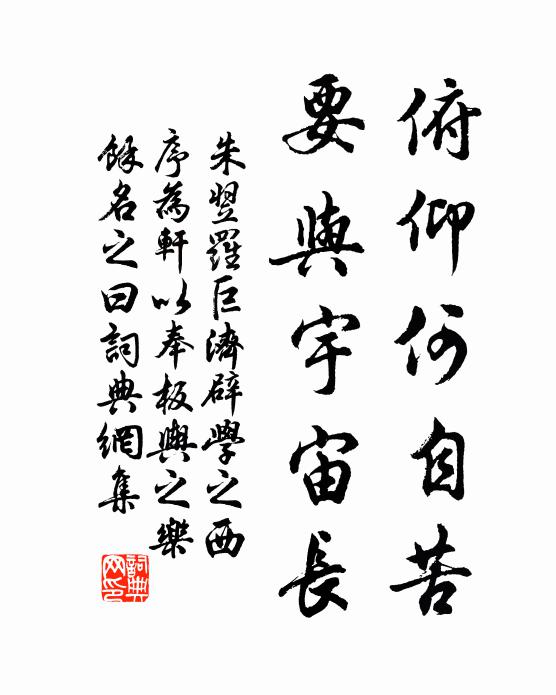 俯仰何自苦
要與宇宙長
朱翌羅巨濟辟學之西
序為軒以奉板輿之樂
餘名之曰詞典網集
詞典網印